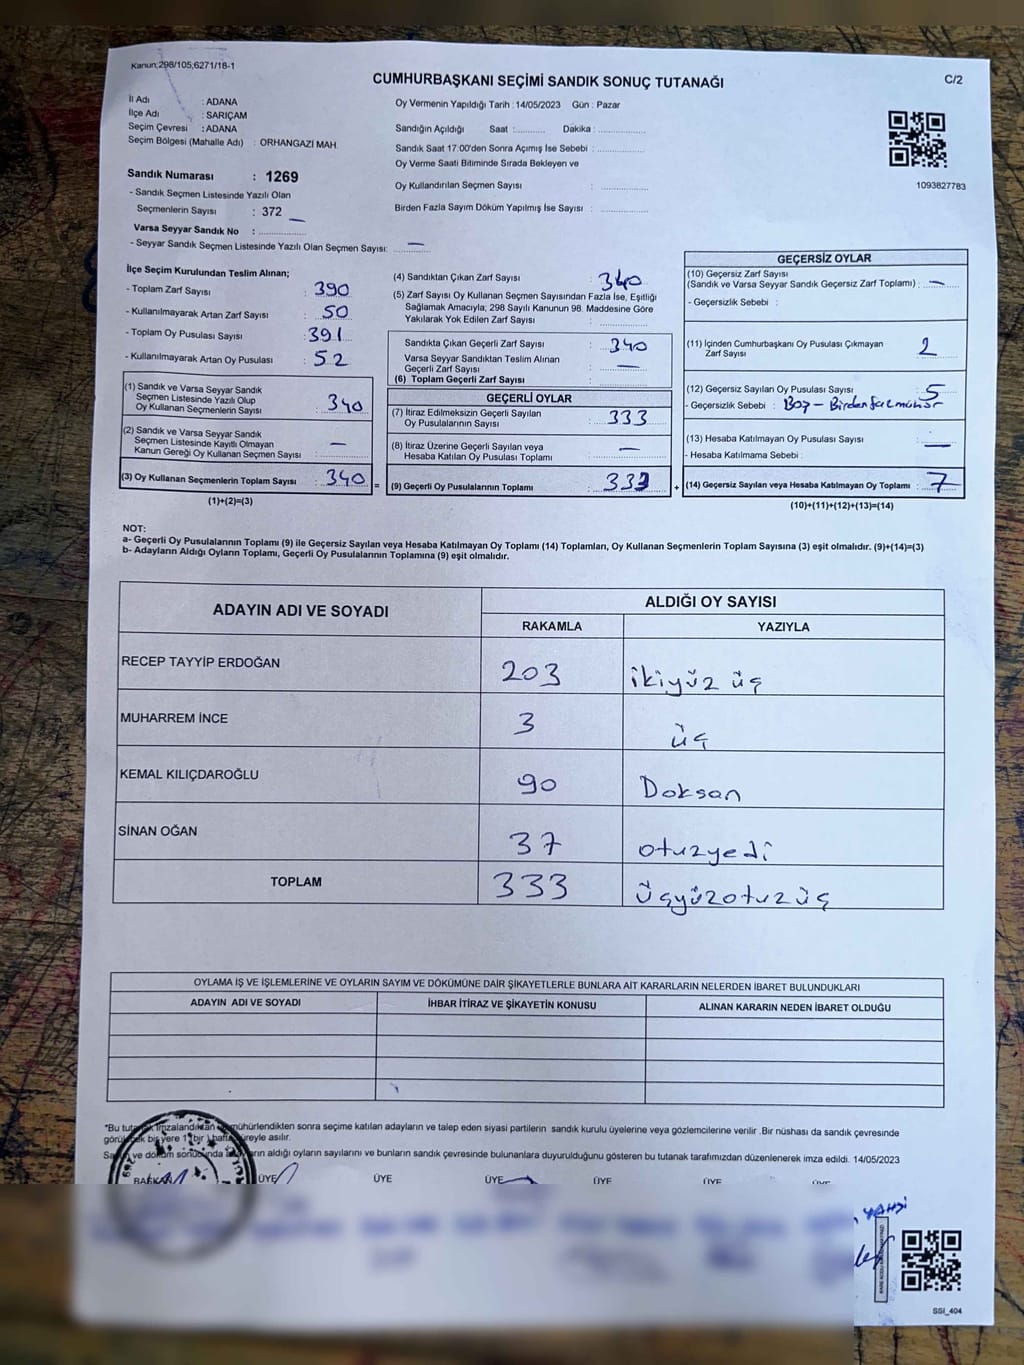 Kanun;298/105,6271/18-1
CUMHURBAŞKANI SEÇİMİ SANDIK SONUÇ TUTANAĞI
C/2
İl Adı : ADANA
İlçe Adı : SARIÇAM
Seçim Çevresi : ADANA
Seçim Bölgesi (Mahalle Adı) : ORHANGAZİ MAH.
Oy Vermenin Yapıldığı Tarih : 14/05/2023 Gün : Pazar
Sandığın Açıldığı Saat : Dakika :
Sandık Saat 17:00'den Sonra Açımış İse Sebebi :
Oy Verme Saati Bitiminde Sırada Bekleyen ve
Oy Kullandırılan Seçmen Sayısı :
Birden Fazla Sayım Döküm Yapılmış İse Sayısı :
1093827783
Sandık Numarası : 1269
- Sandık Seçmen Listesinde Yazılı Olan
Seçmenlerin Sayısı : 372
Varsa Seyyar Sandık No :
- Seyyar Sandık Seçmen Listesinde Yazılı Olan Seçmen Sayısı: —
İlçe Seçim Kurulundan Teslim Alınan;
- Toplam Zarf Sayısı : 390
- Kullanılmayarak Artan Zarf Sayısı : 50
- Toplam Oy Pusulası Sayısı : 391
- Kullanılmayarak Artan Oy Pusulası : 52
(1) Sandık ve Varsa Seyyar Sandık
Seçmen Listesinde Yazılı Olup
Oy Kullanan Seçmenlerin Sayısı : 340
(2) Sandık ve Varsa Seyyar Sandık
Seçmen Listesinde Kayıtlı Olmayan
Kanun Gereği Oy Kullanan Seçmen Sayısı : —
(3) Oy Kullanan Seçmenlerin Toplam Sayısı : 340
(1)+(2)=(3)
(4) Sandıktan Çıkan Zarf Sayısı : 340
(5) Zarf Sayısı Oy Kullanan Seçmen Sayısından Fazla İse, Eşitliği
Sağlamak Amacıyla; 298 Sayılı Kanunun 98. Maddesine Göre
Yakılarak Yok Edilen Zarf Sayısı :
Sandıkta Çıkan Geçerli Zarf Sayısı : 340
Varsa Seyyar Sandıktan Teslim Alınan
Geçerli Zarf Sayısı : —
(6) Toplam Geçerli Zarf Sayısı :
GEÇERLİ OYLAR
(7) İtiraz Edilmeksizin Geçerli Sayılan
Oy Pusulalarının Sayısı : 333
(8) İtiraz Üzerine Geçerli Sayılan veya
Hesaba Katılan Oy Pusulası Toplamı : —
= (9) Geçerli Oy Pusulalarının Toplamı : 333
GEÇERSİZ OYLAR
(10) Geçersiz Zarf Sayısı
(Sandık ve Varsa Seyyar Sandık Geçersiz Zarf Toplamı) : —
- Geçersizlik Sebebi :
(11) İçinden Cumhurbaşkanı Oy Pusulası Çıkmayan
Zarf Sayısı : 2
(12) Geçersiz Sayılan Oy Pusulası Sayısı : 5
- Geçersizlik Sebebi : Boş - Birden fazlmühür
(13) Hesaba Katılmayan Oy Pusulası Sayısı : —
- Hesaba Katılmama Sebebi :
+ (14) Geçersiz Sayılan veya Hesaba Katılmayan Oy Toplamı : 7
(10)+(11)+(12)+(13)=(14)
NOT:
a- Geçerli Oy Pusulalarının Toplamı (9) ile Geçersiz Sayılan veya Hesaba Katılmayan Oy Toplamı (14) Toplamları, Oy Kullanan Seçmenlerin Toplam Sayısına (3) eşit olmalıdır. (9)+(14)=(3)
b- Adayların Aldığı Oyların Toplamı, Geçerli Oy Pusulalarının Toplamına (9) eşit olmalıdır.
ADAYIN ADI VE SOYADI
ALDIĞI OY SAYISI
RAKAMLA YAZIYLA
RECEP TAYYİP ERDOĞAN 203 ikiyüz üç
MUHARREM İNCE 3 üç
KEMAL KILIÇDAROĞLU 90 Doksan
SİNAN OĞAN 37 otuzyedi
TOPLAM 333 üçyüzotuzüç
OYLAMA İŞ VE İŞLEMLERİNE VE OYLARIN SAYIM VE DÖKÜMÜNE DAİR ŞİKAYETLERLE BUNLARA AİT KARARLARIN NELERDEN İBARET BULUNDUKLARI
ADAYIN ADI VE SOYADI İHBAR İTİRAZ VE ŞİKAYETİN KONUSU ALINAN KARARIN NEDEN İBARET OLDUĞU
*Bu imzalandıktan mühürlendikten sonra seçime katılan adayların ve talep eden siyasi partilerin sandık kurulu üyelerine veya gözlemcilerine verilir .Bir nüshası da sandık çevresinde
bir yere 1 (bir) süreyle asılır.
ve döküm sonucunda aldığı oyların sayılarını ve bunların sandık çevresinde bulunanlara duyurulduğunu gösteren bu tutanak tarafımızdan düzenlenerek imza edildi. 14/05/2023
BAŞKAN ÜYE ÜYE ÜYE ÜYE ÜYE ÜYE
SSI_404